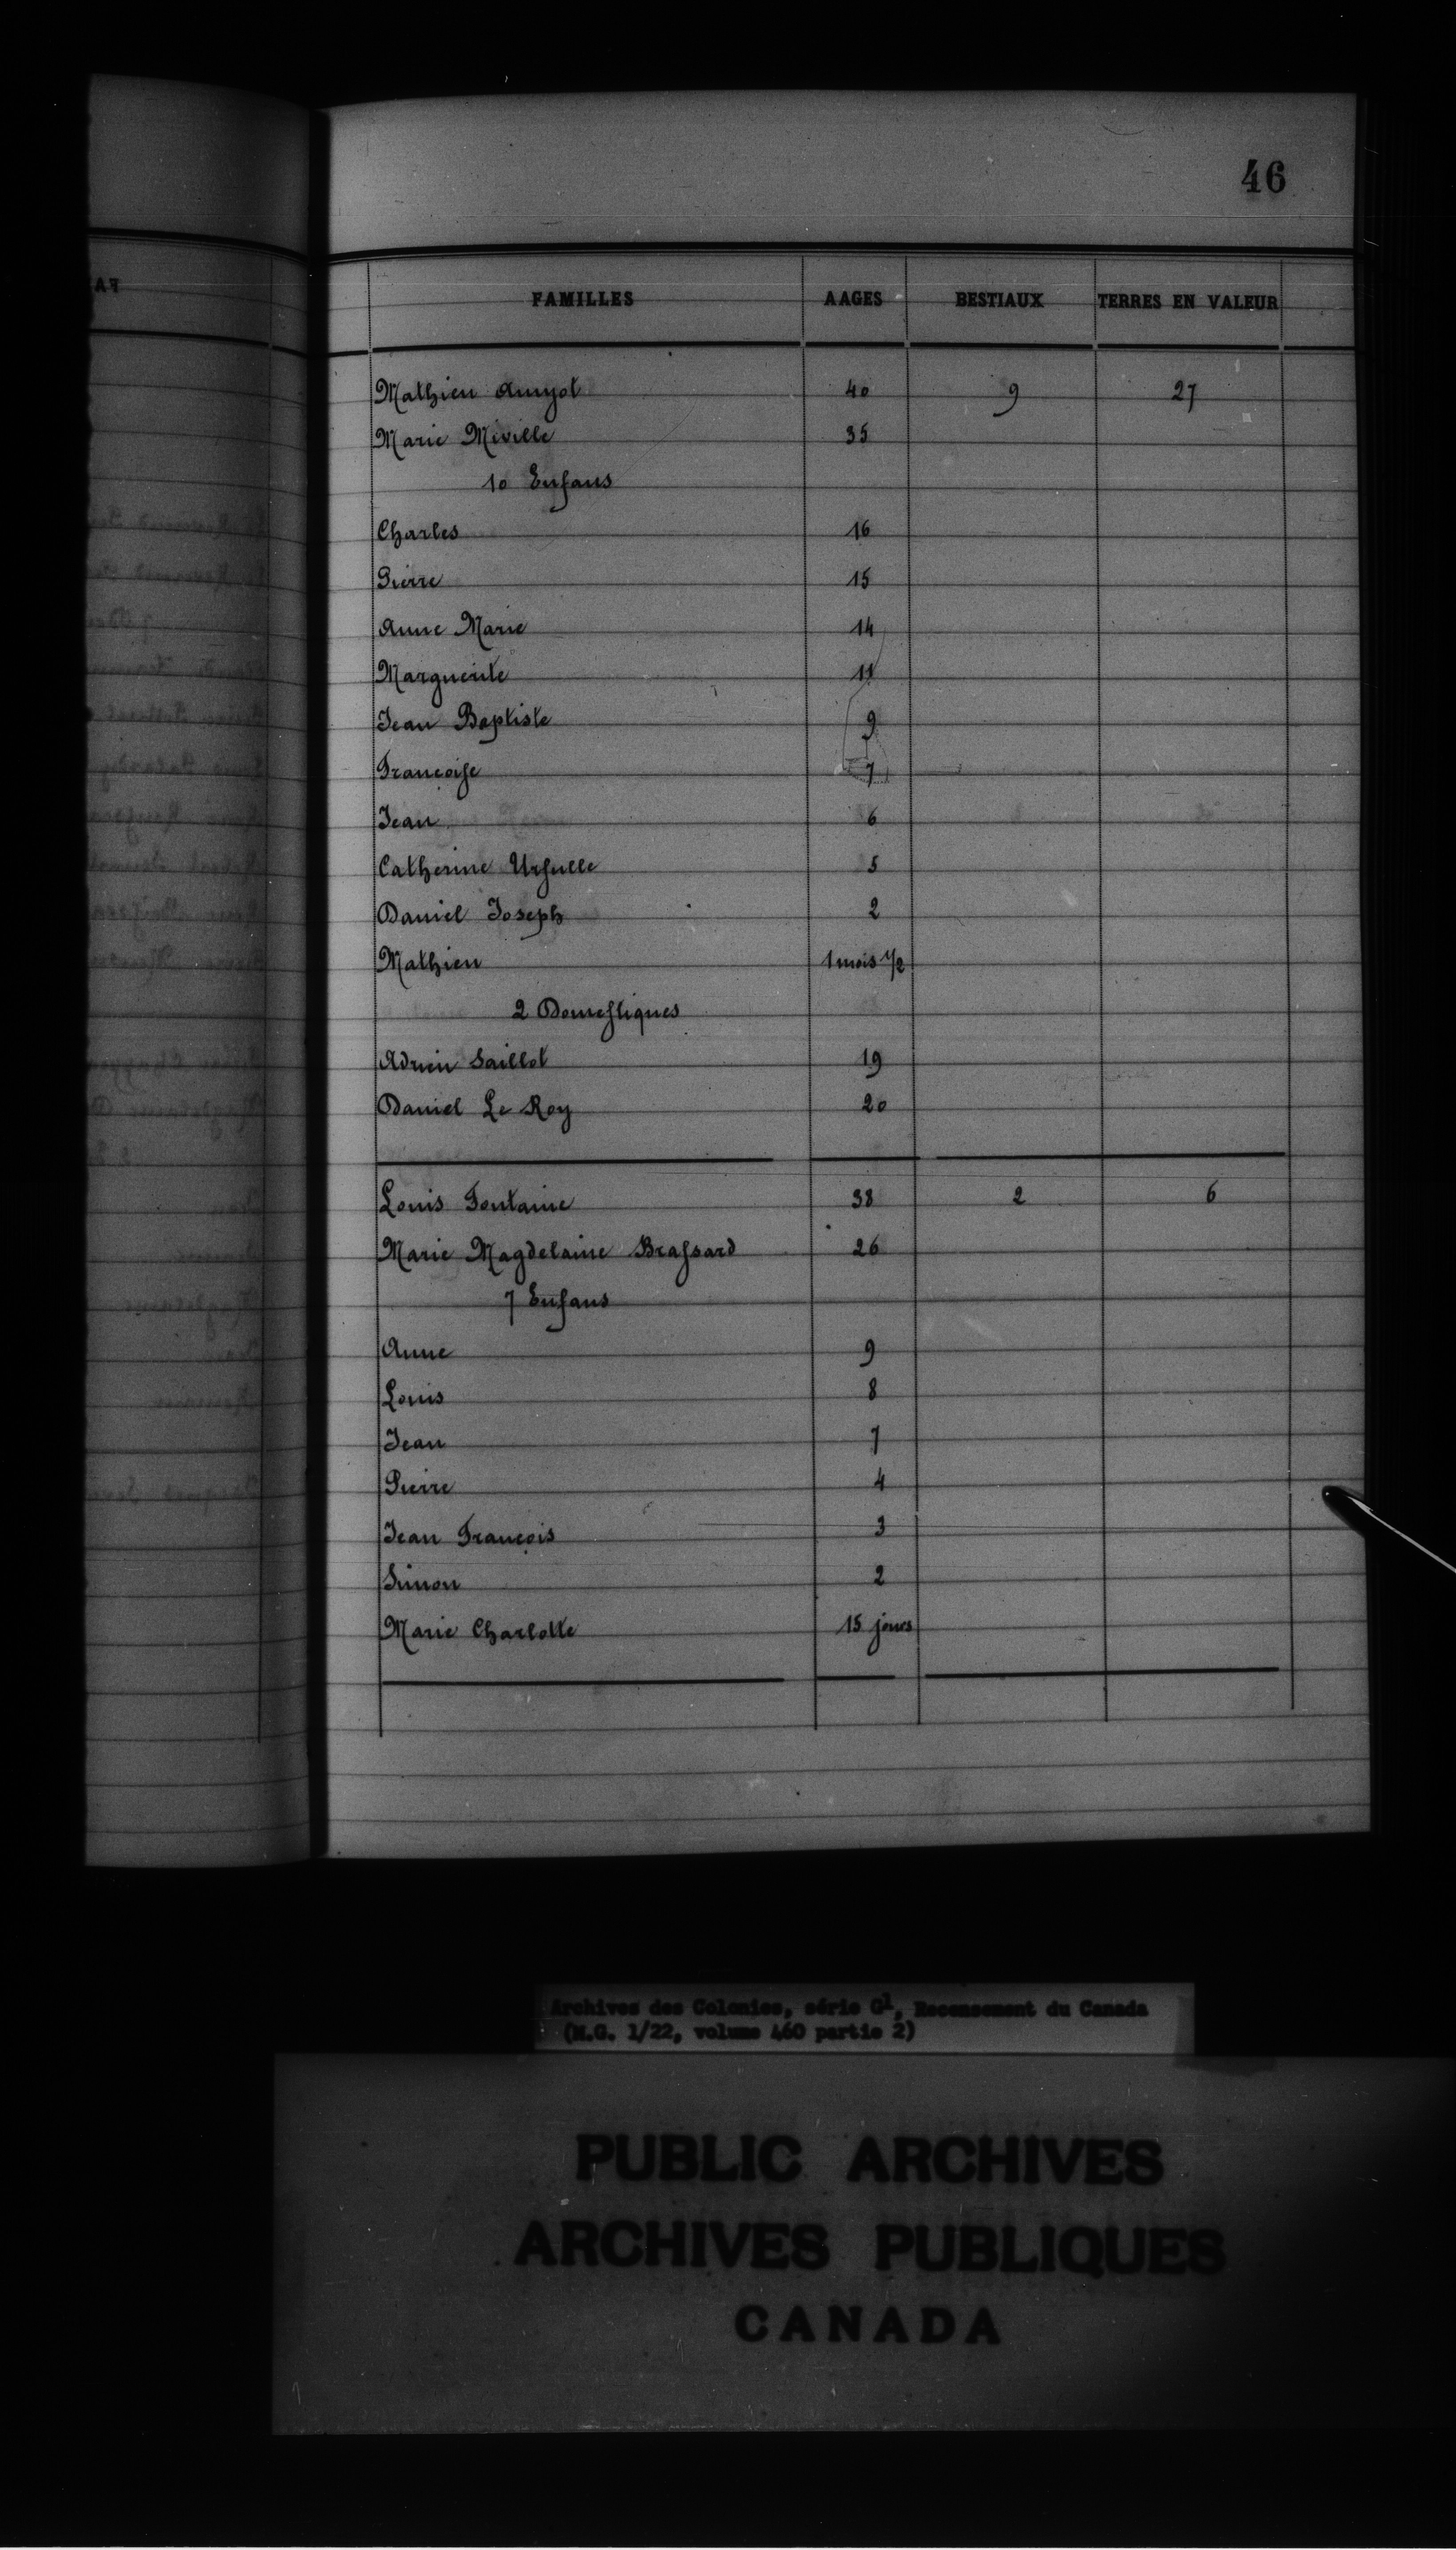 46
FAMILLES AAGES BESTIAUX TERRES EN VALEUR
Mathieu Amyot 40 9 27
Marie Miville 35
10 Enfans
Charles 16
Pierre 15
Anne Marie 14
Marguerite 11
Jean Baptiste 9
Françoise 7
Jean 6
Catherine Ursulle 5
Daniel Joseph 2
Mathieu 1 mois 1/2
2 Domestiques
Adrien Saillot 19
Daniel Le Roy 20
Louis Fontaine 38 2 6
Marie Magdelaine Brassard 26
7 Enfans
Anne 9
Louis 8
Jean 7
Pierre 4
Jean François 3
Simon 2
Marie Charlotte 15 jours
Archives des Colonies, série G1, Recensement du Canada
(M.G. 1/22, volume 460 partie 2)
PUBLIC ARCHIVES
ARCHIVES PUBLIQUES
CANADA